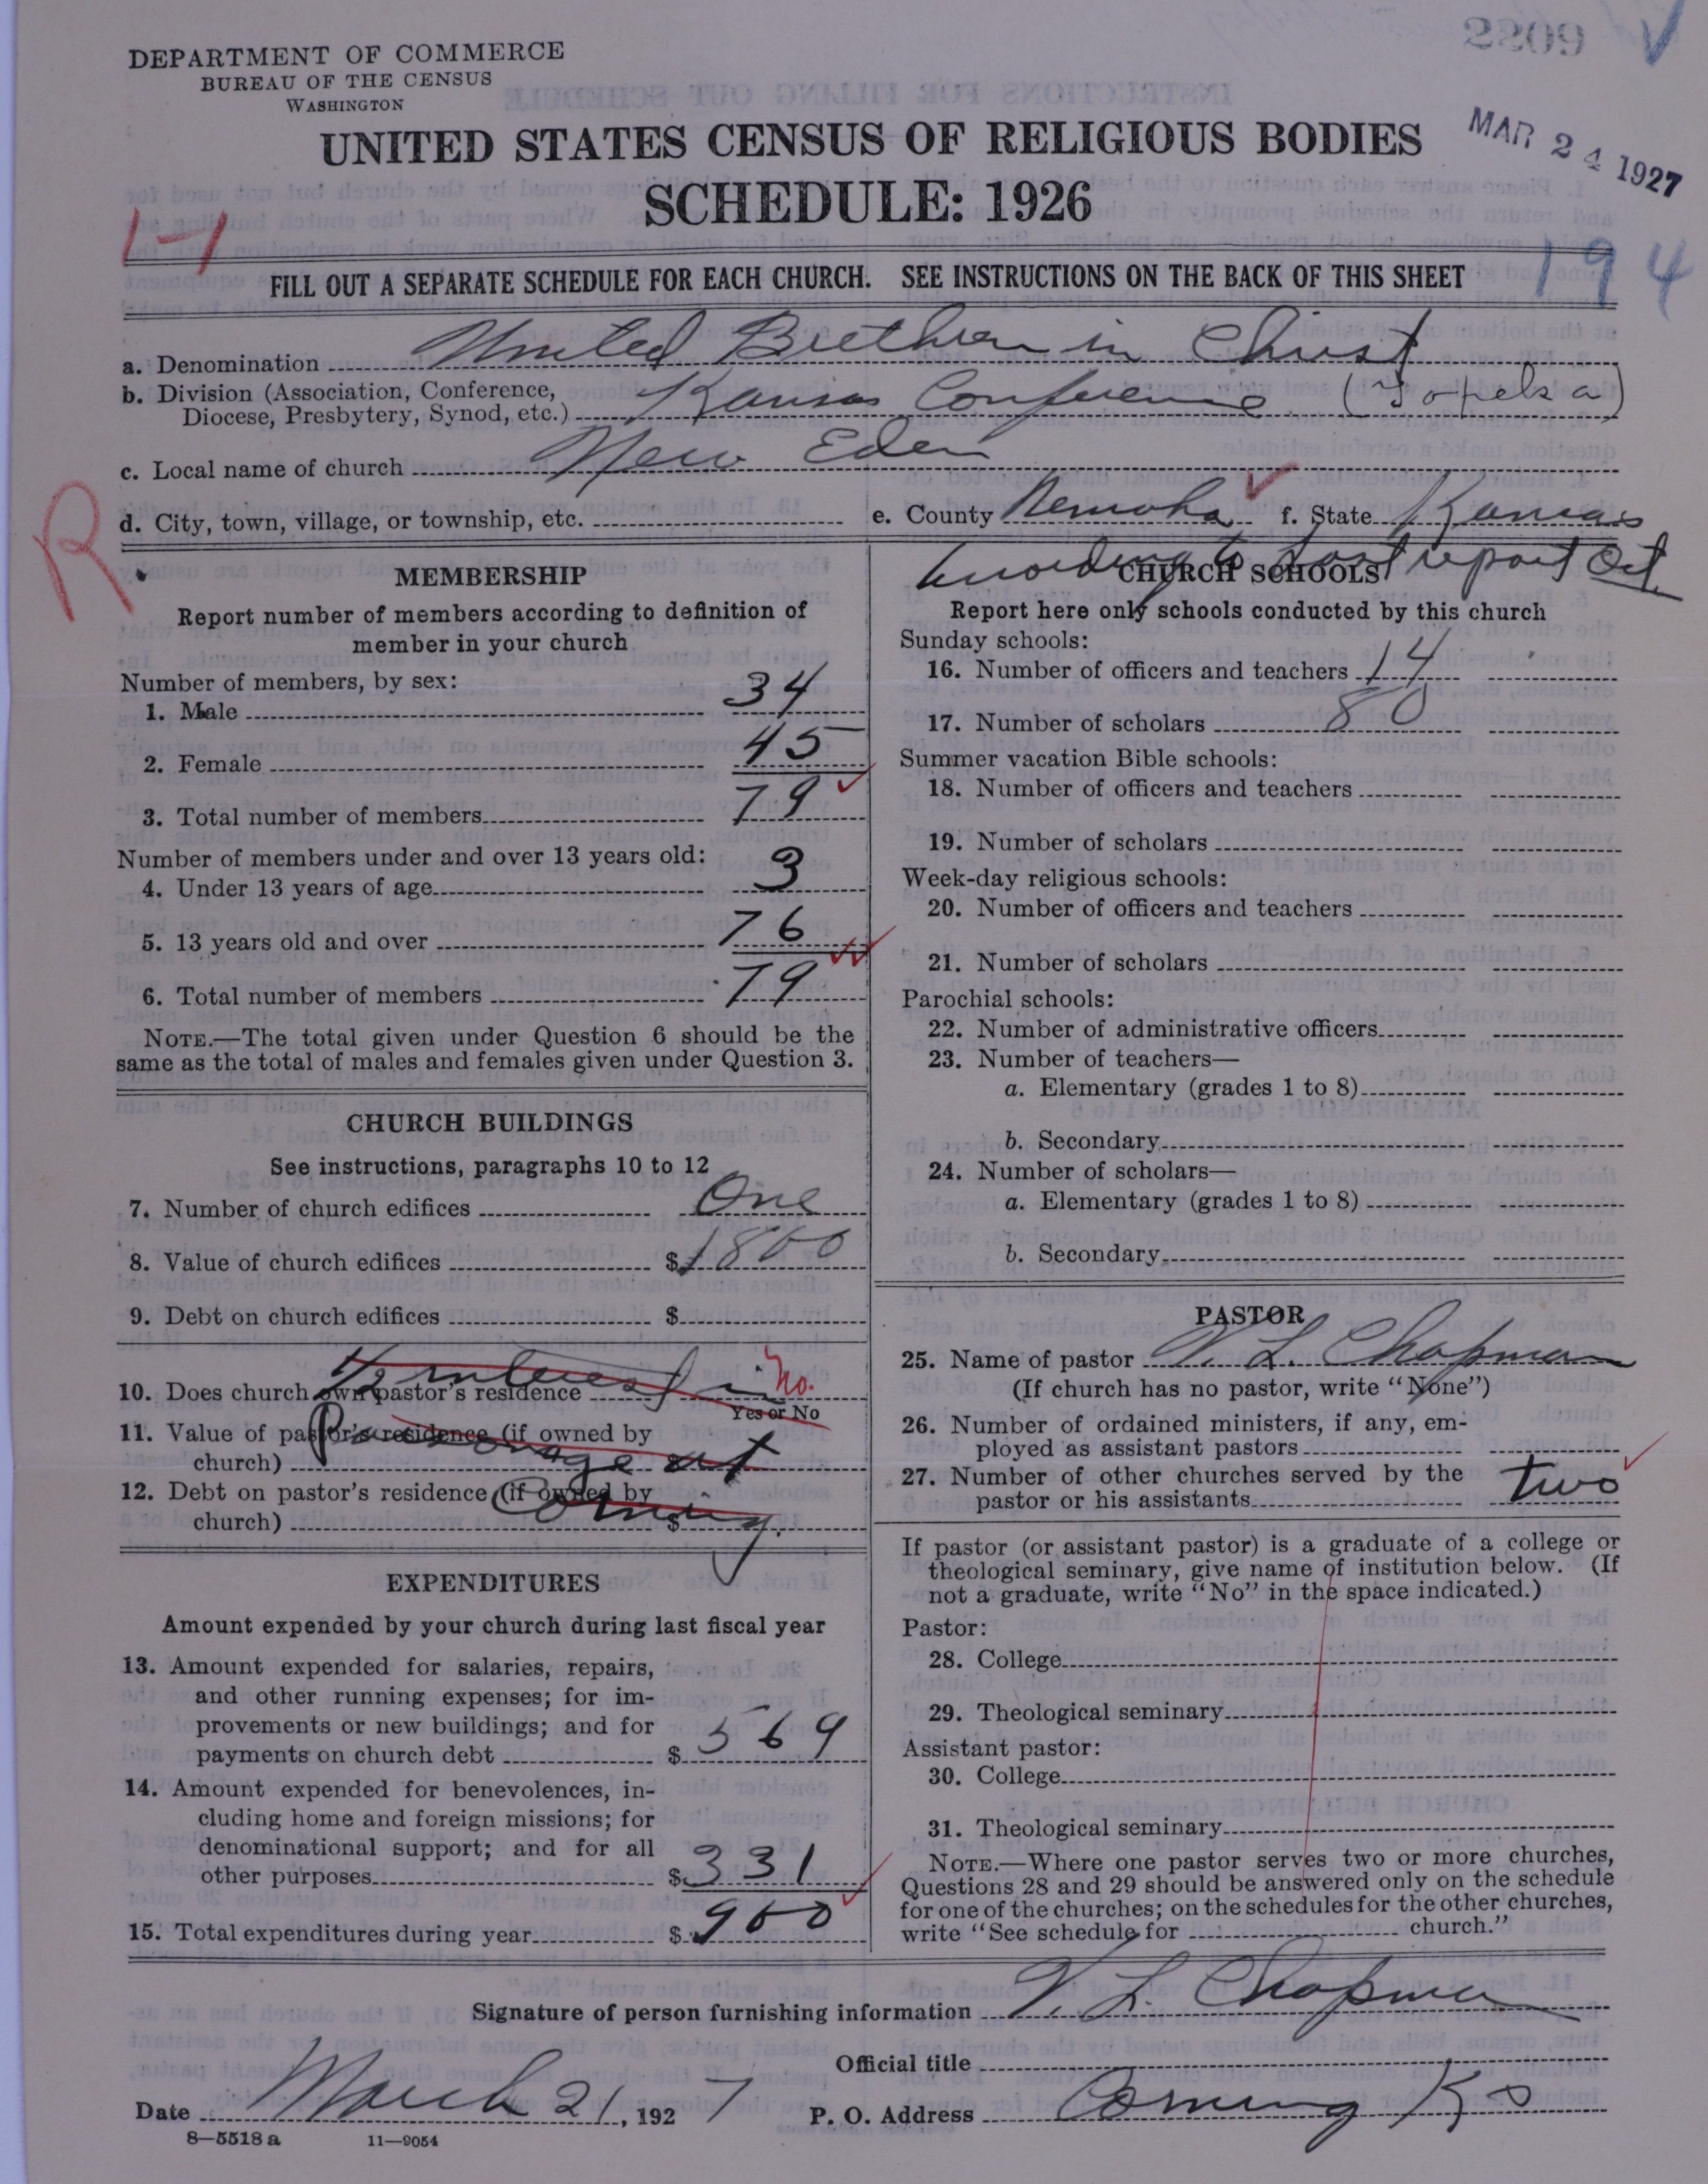 2209
DEPARTMENT OF COMMERCE
BUREAU OF THE CENSUS
WASHINGTON
UNITED STATES CENSUS OF RELIGIOUS BODIES
SCHEDULE: 1926
MAR 24 1927
1-1
194
FILL OUT A SEPARATE SCHEDULE FOR EACH CHURCH. SEE INSTRUCTIONS ON THE BACK OF THIS SHEET
a. Denomination United Brethren in Christ
b. Division (Association, Conference,
Diocese, Presbytery, Synod, etc.) Kansas Conference (Topeka)
c. Local name of church New Eden
d. City, town, village, or township, etc. e. County Nemaha f. State Kansas
R
MEMBERSHIP
Report number of members according to definition of
member in your church
Number of members, by sex:
1. Male 34
2. Female 45
3. Total number of members 79
Number of members under and over 13 years old:
4. Under 13 years of age 3
5. 13 years old and over 76
6. Total number of members 79
NOTE.—The total given under Question 6 should be the
same as the total of males and females given under Question 3.
CHURCH BUILDINGS
See instructions, paragraphs 10 to 12
7. Number of church edifices One
8. Value of church edifices $1800
9. Debt on church edifices $
10. Does church own pastor's residence No.
Yes or No
11. Value of pastor's residence (if owned by
church)
12. Debt on pastor's residence (if owned by
church) $
interest in
Parsonage at
Corning.
EXPENDITURES
Amount expended by your church during last fiscal year
13. Amount expended for salaries, repairs,
and other running expenses; for im-
provements or new buildings; and for
payments on church debt $569
14. Amount expended for benevolences, in-
cluding home and foreign missions; for
denominational support; and for all
other purposes $331
15. Total expenditures during year $900
According to Last report Oct.
CHURCH SCHOOLS
Report here only schools conducted by this church
Sunday schools:
16. Number of officers and teachers 14
17. Number of scholars 80
Summer vacation Bible schools:
18. Number of officers and teachers
19. Number of scholars
Week-day religious schools:
20. Number of officers and teachers
21. Number of scholars
Parochial schools:
22. Number of administrative officers
23. Number of teachers—
a. Elementary (grades 1 to 8)
b. Secondary
24. Number of scholars—
a. Elementary (grades 1 to 8)
b. Secondary
PASTOR
25. Name of pastor V. L. Chapman
(If church has no pastor, write "None")
26. Number of ordained ministers, if any, em-
ployed as assistant pastors
27. Number of other churches served by the
pastor or his assistants two
If pastor (or assistant pastor) is a graduate of a college or
theological seminary, give name of institution below. (If
not a graduate, write "No" in the space indicated.)
Pastor:
28. College
29. Theological seminary
Assistant pastor:
30. College
31. Theological seminary
NOTE.—Where one pastor serves two or more churches,
Questions 28 and 29 should be answered only on the schedule
for one of the churches; on the schedules for the other churches,
write "See schedule for church."
Signature of person furnishing information V. L. Chapman
Official title
Date March 21, 1927 P. O. Address Corning Ks
8—5518 a 11—9054